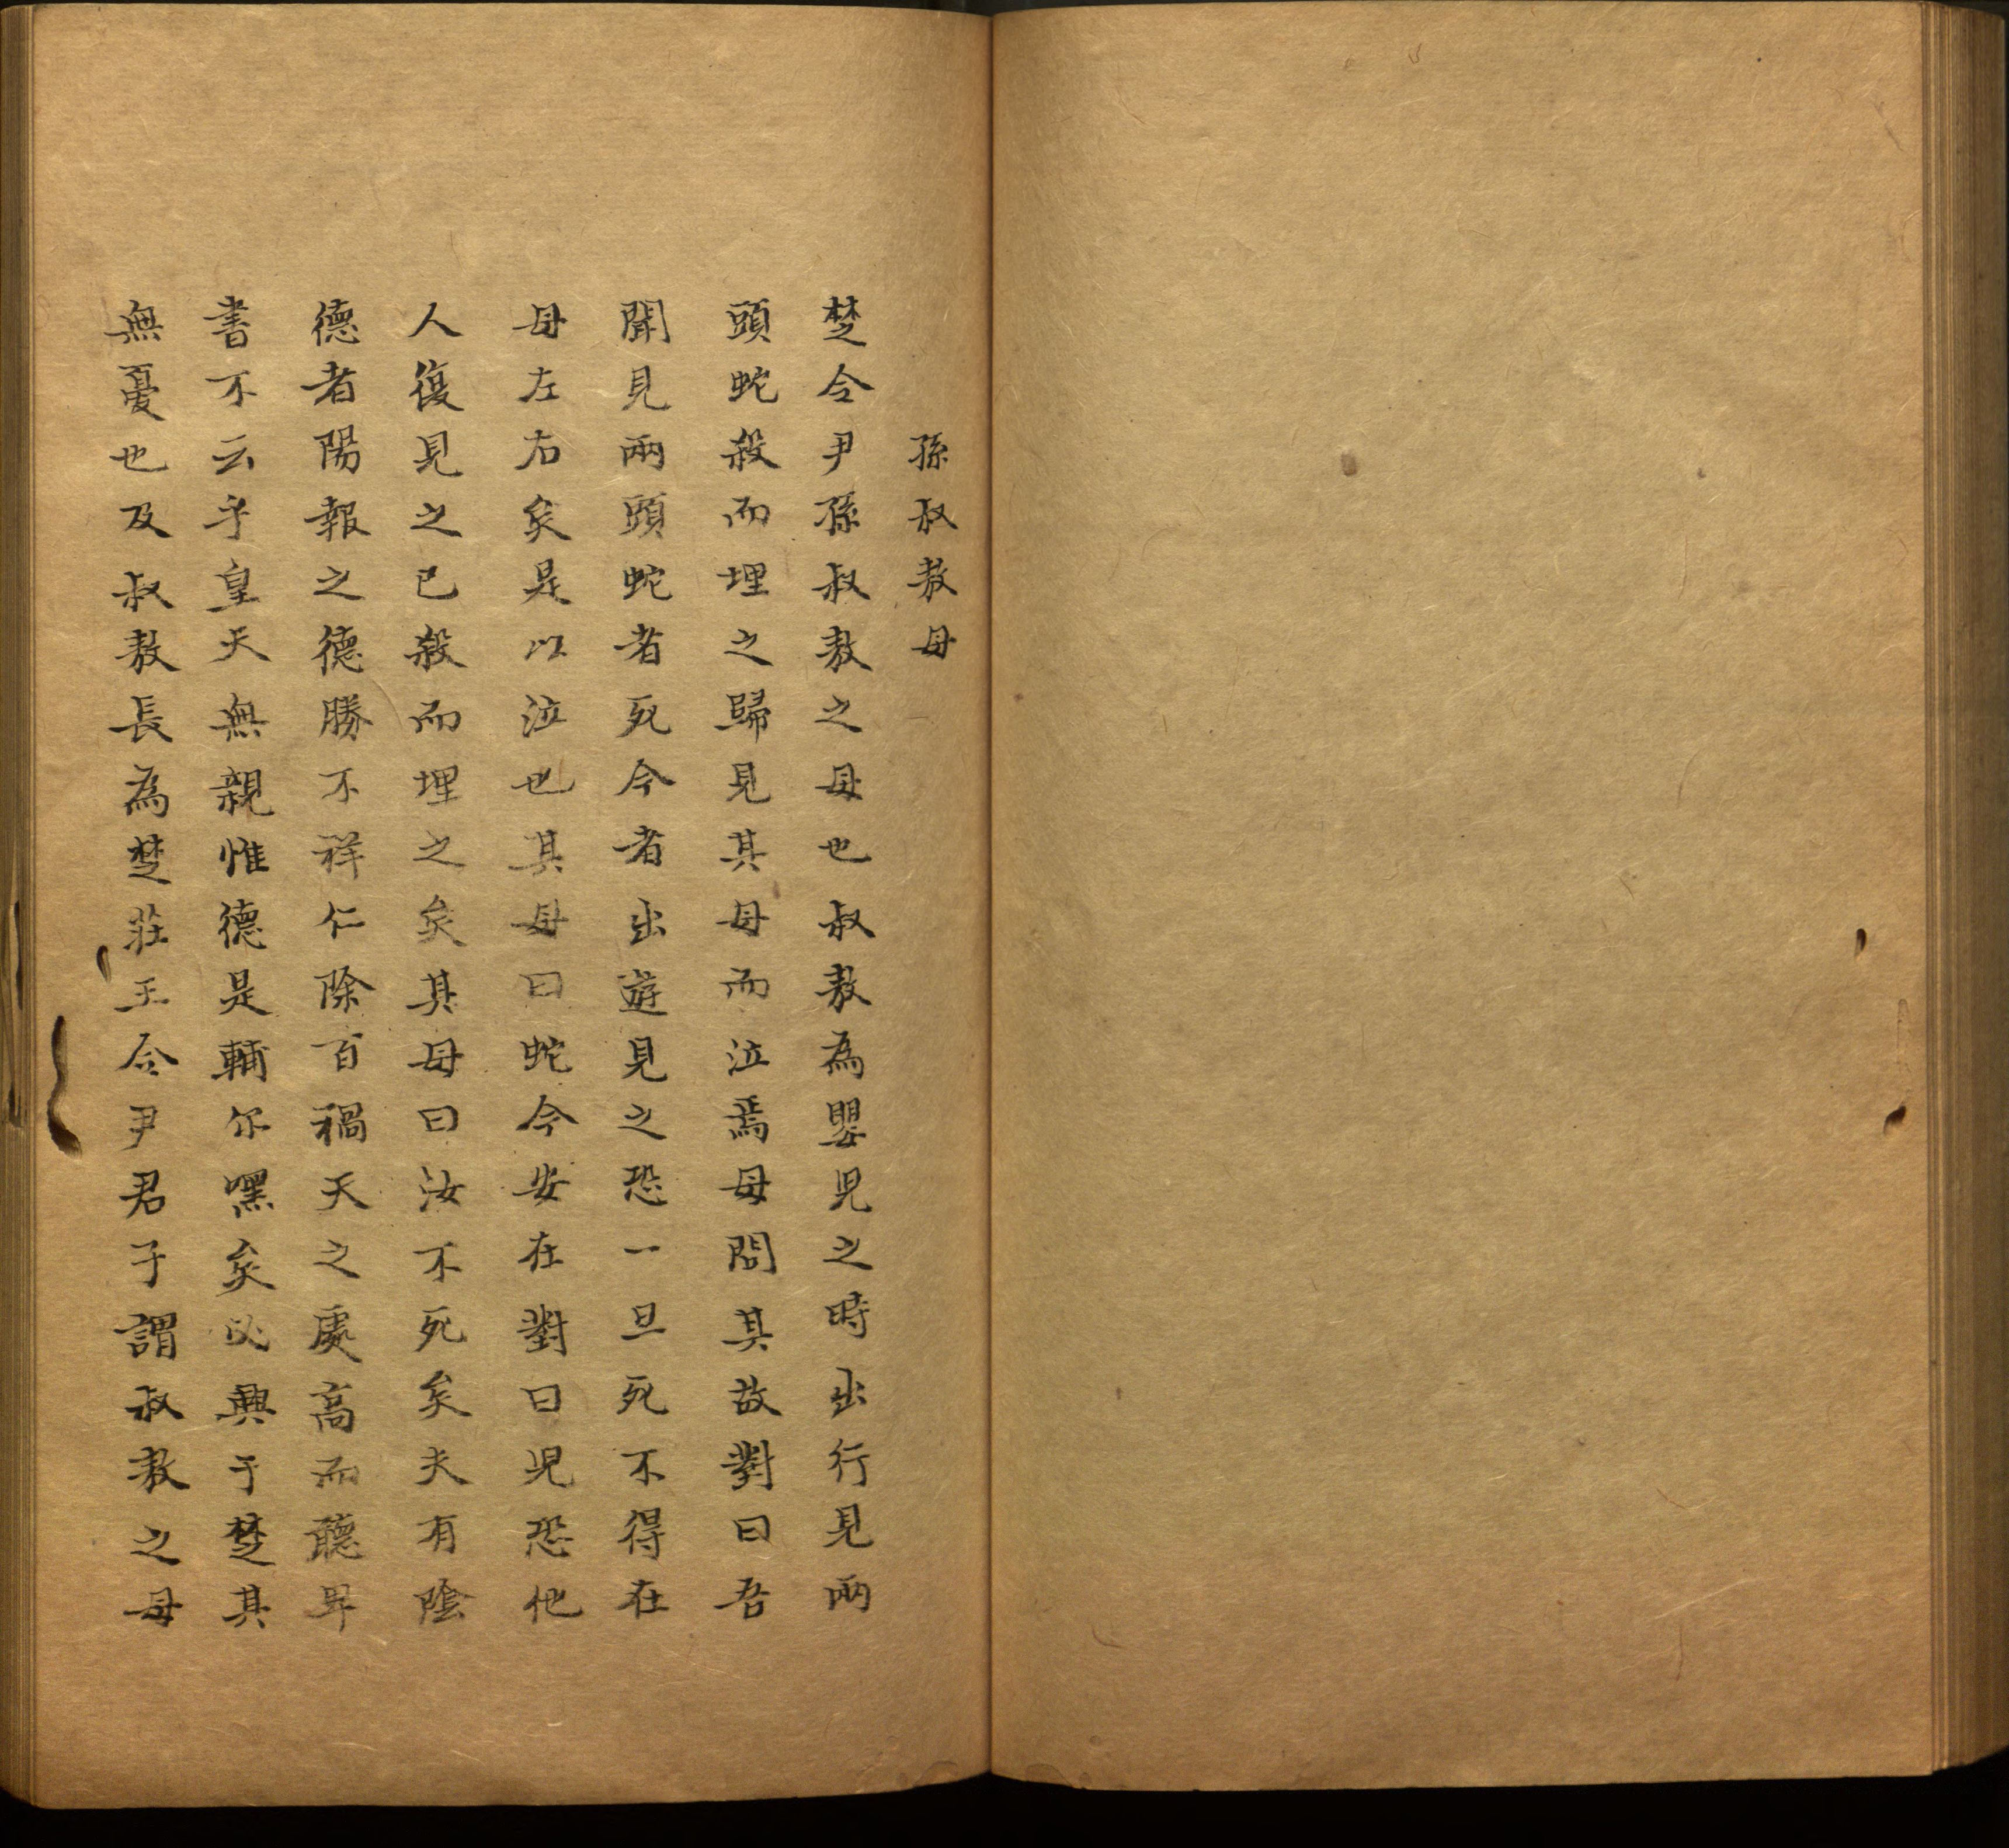 孫叔敖母
楚令尹孫叔敖之母也叔敖為嬰兒之時出行見兩
頭蛇殺而埋之歸見其母而泣焉母問其故對曰吾
聞見兩頭蛇者死今者出遊見之恐一旦死不得在
母左右矣是以泣也其母曰蛇今安在對曰児恐他
人復見之已殺而埋之矣其母曰汝不死矣夫有陰
德者陽報之德勝不祥仁除百禍天之處高而聽卑
書不云乎皇天無親惟德是輔尓嘿矣必興于楚其
無憂也及叔敖長為楚莊王令尹君子謂叔敖之母